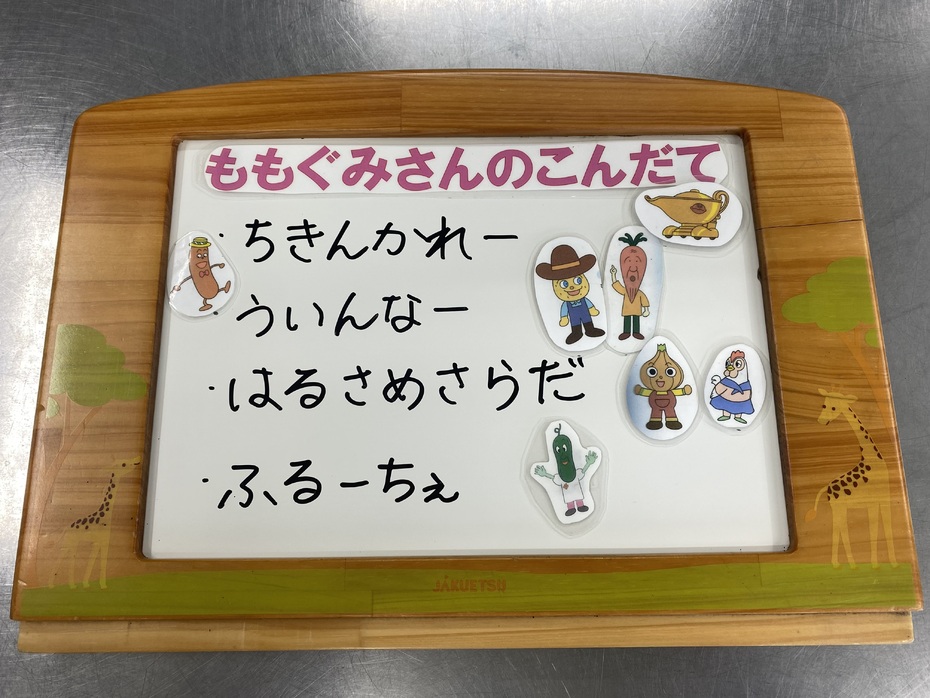 ももぐみさんのこんだて
・ちきんかれー
ういんなー
・はるさめさらだ
・ふるーちぇ
JAKUETSU